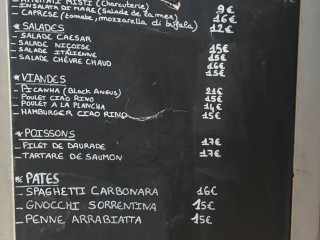 MISTI (Charcuterie) 9€
INSALATA DI MARE (Salade de la mer) 16€
CAPRESE (tomate, mozzarella di bufala) 12€
* SALADES
- SALADE CAESAR 15€
- SALADE NIÇOISE 15€
- SALADE ITALIENNE 16€
- SALADE CHÈVRE CHAUD 15€
* VIANDES
- PICANHA (Black Angus) 21€
- POULET CIAO RINO 15€
- POULET A LA PLANCHA 14€
- HAMBURGER CIAO RINO 15€
* POISSONS
- FILET DE DAURADE 17€
- TARTARE DE SAUMON 17€
* PATES
- SPAGHETTI CARBONARA 16€
- GNOCCHI SORRENTINA 15€
- PENNE ARRABIATTA 15€